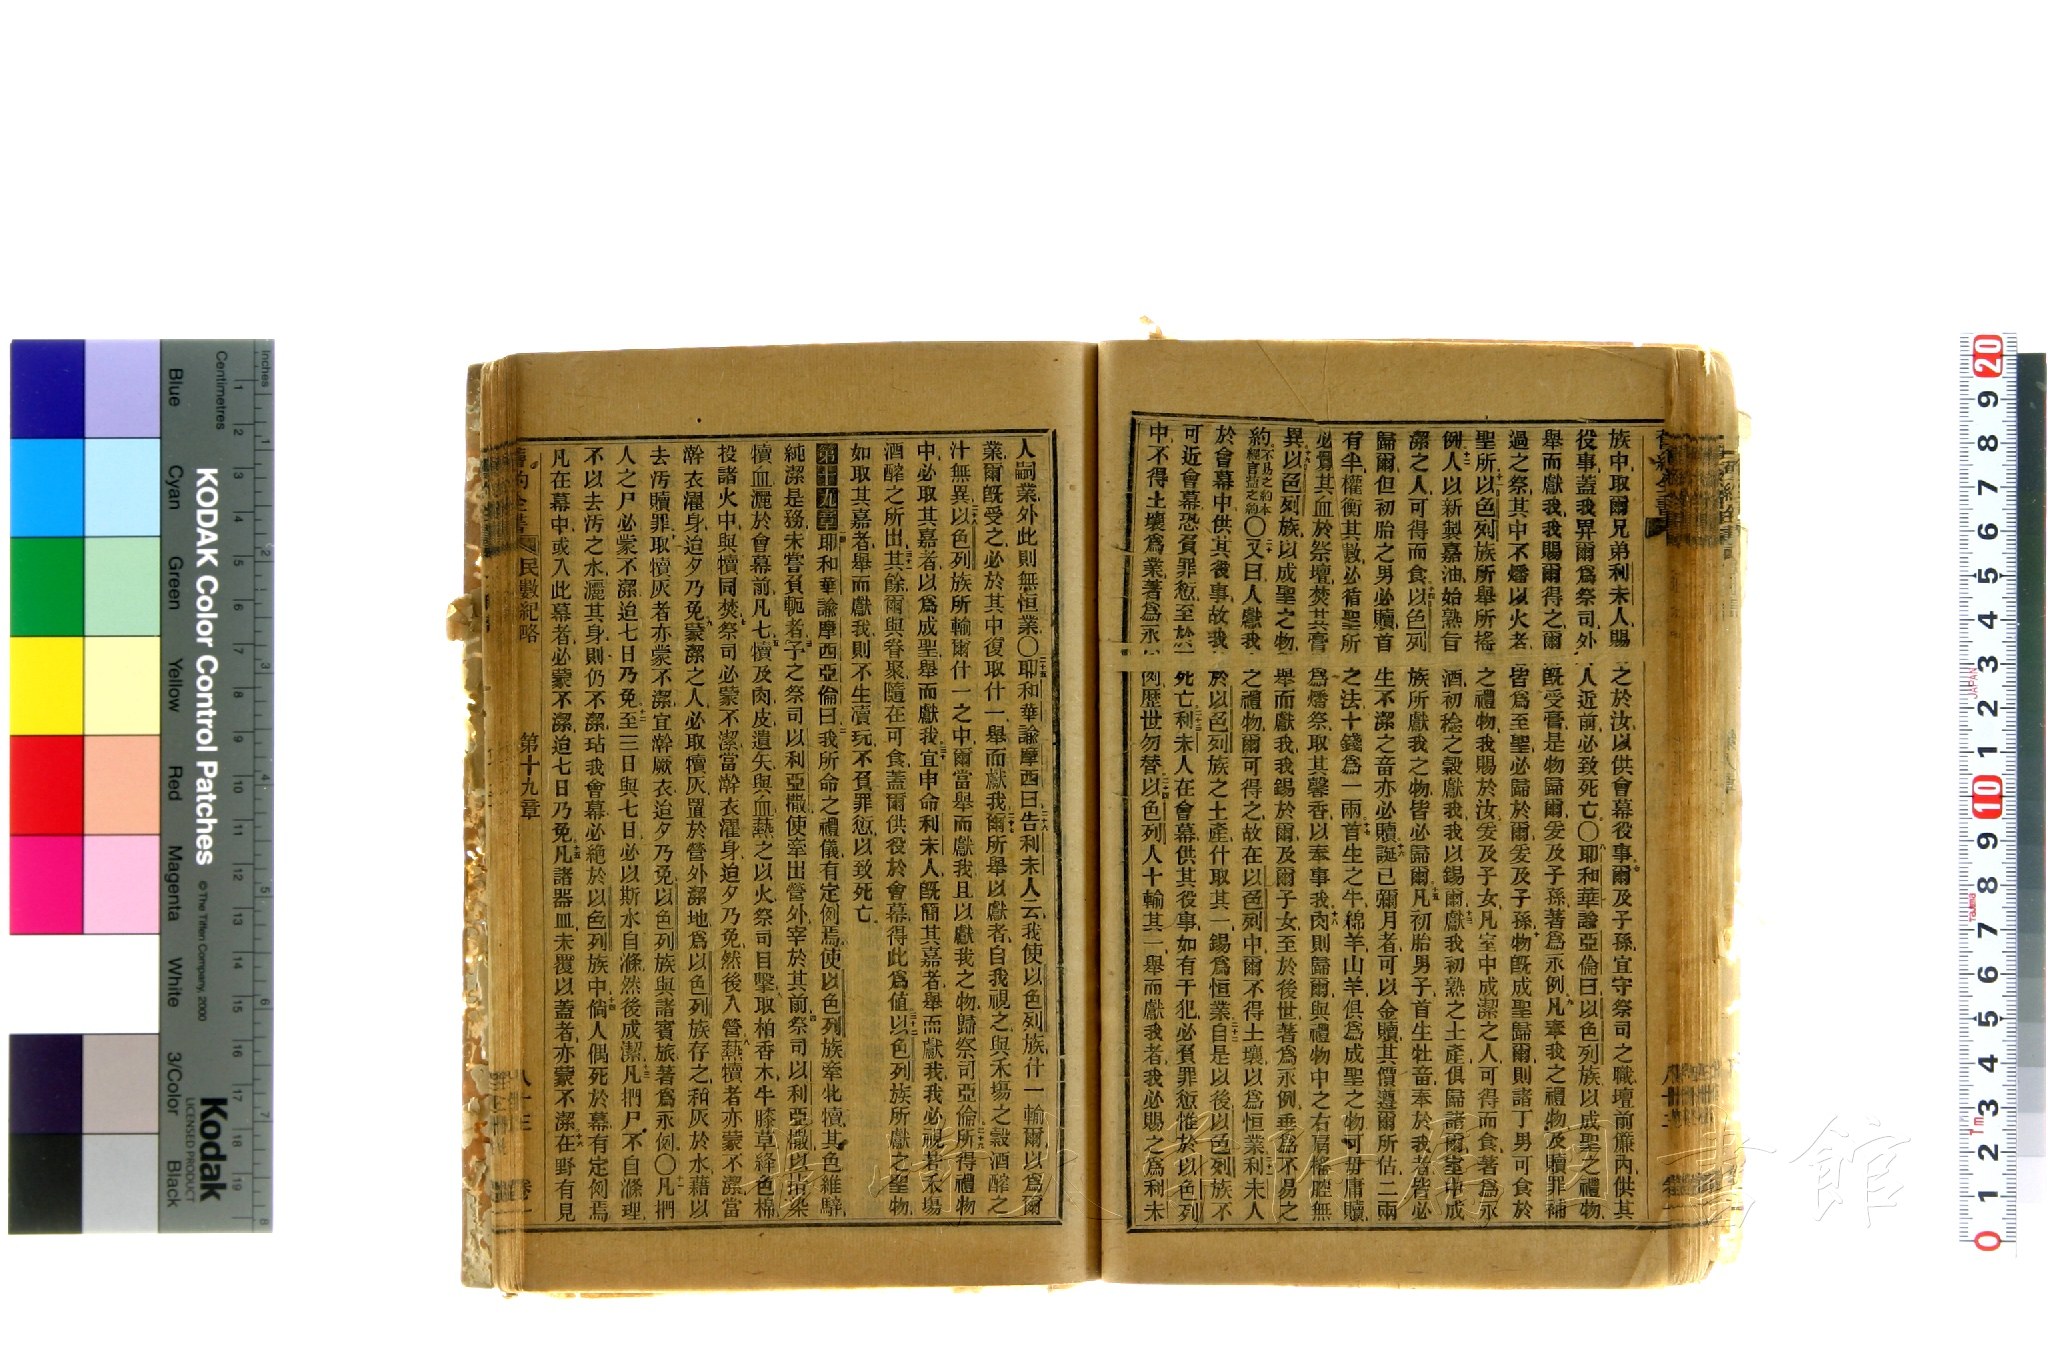 族中取爾兄弟利未人賜之於汝以供會幕役事爾及子孫宜守祭司之職壇前簾內供其
役事蓋我畀爾為祭司外人近前必致死亡〇耶和華諭亞倫曰以色列族以成聖之禮物
舉而獻我我賜爾得之爾既受膏是物歸爾爰及子孫著為永例凡奉我之禮物及贖罪補
過之祭其中不燔以火者皆為至聖必歸於爾爰及子孫物既成聖歸爾則諸丁男可食於
聖所以色列族所舉所搖之禮物我賜於汝爰及子女凡室中成潔之人可得而食著為永
例人以新製嘉油始熟旨酒初稔之穀獻我我以錫爾獻我初熟之土產俱歸諸爾室中成
潔之人可得而食以色列族所獻我之物皆必歸爾凡初胎男子首生牲畜奉於我者皆必
歸爾但初胎之男必贖首生不潔之畜亦必贖誕已彌月者可以金贖其價遵爾所估二兩
有半權衡其數必循聖所之法十錢為一兩首生之牛綿羊山羊俱為成聖之物可毋庸贖
必釁其血於祭壇焚其膏為燔祭取其馨香以奉事我肉則歸爾與禮物中之右肩搖腔無
異以色列族以成聖之物舉而獻我我錫於爾及爾子女至於後世著為永例垂為不易之
約不易之約本經言鹽之約〇又曰人獻我之禮物爾可得之故在以色列中爾不得土壤以為恒業利未人
於會幕中供其役事故我於以色列族之土產什取其一錫為恒業自是以後以色列族不
可近會幕恐負罪愆至於死亡利未人在會幕供其役事如有干犯必負罪愆惟於以色列
中不得土壤為業著為永例歷世勿替以色列人十輸其一舉而獻我者我必賜之為利未
人嗣業外此則無恒業〇耶和華諭摩西曰告利未人云我使以色列族什一輸爾以為爾
業爾既受之必於其中復取什一舉而獻我爾所舉以獻者自我視之與禾場之穀酒醡之
汁無異以色列族所輸爾什一之中爾當舉而獻我且以獻我之物歸祭司亞倫所得禮物
中必取其嘉者以為成聖舉而獻我宜申命利未人既簡其嘉者舉而獻我我必視若禾場
酒醡之所出其餘爾與眷聚隨在可食蓋爾供役於會幕得此為值以色列族所獻之聖物
如取其嘉者舉而獻我則不生瀆玩不負罪愆以致死亡
第十九章耶和華諭摩西亞倫曰我所命之禮儀有定例焉使以色列族牽牝犢其色維騂
純潔是務未嘗負軛者予之祭司以利亞撒使牽出營外宰於其前祭司以利亞撒以指染
犢血灑於會幕前凡七犢及肉皮遺矢與血爇之以火祭司目擊取柏香木牛膝草絳色棉
投諸火中與犢同焚祭司必蒙不潔當澣衣濯身迨夕乃免然後入營爇犢者亦蒙不潔當
澣衣濯身迨夕乃免蒙潔之人必取犢灰置於營外潔地為以色列族存之和灰於水藉以
去污贖罪取犢灰者亦蒙不潔宜澣厥衣迨夕乃免以色列族與諸賓旅著為永例〇凡捫
人之尸必蒙不潔迨七日乃免至三日與七日必以斯水自滌然後成潔凡捫尸不自滌理
不以去污之水灑其身則仍不潔玷我會幕必絕於以色列族中倘人偶死於幕有定例焉
凡在幕中或入此幕者必蒙不潔迨七日乃免凡諸器皿未覆以蓋者亦蒙不潔在野有見
舊約全書 民數紀略 第十九章 八十三 卷一
KODAK Color Control Patches
© The Tiffen Company, 2000
Kodak
LICENSED PRODUCT
Inches
Centimetres
Blue
Cyan
Green
Yellow
Red
Magenta
White
3/Color
Black
JAPAN
Tajima
1m